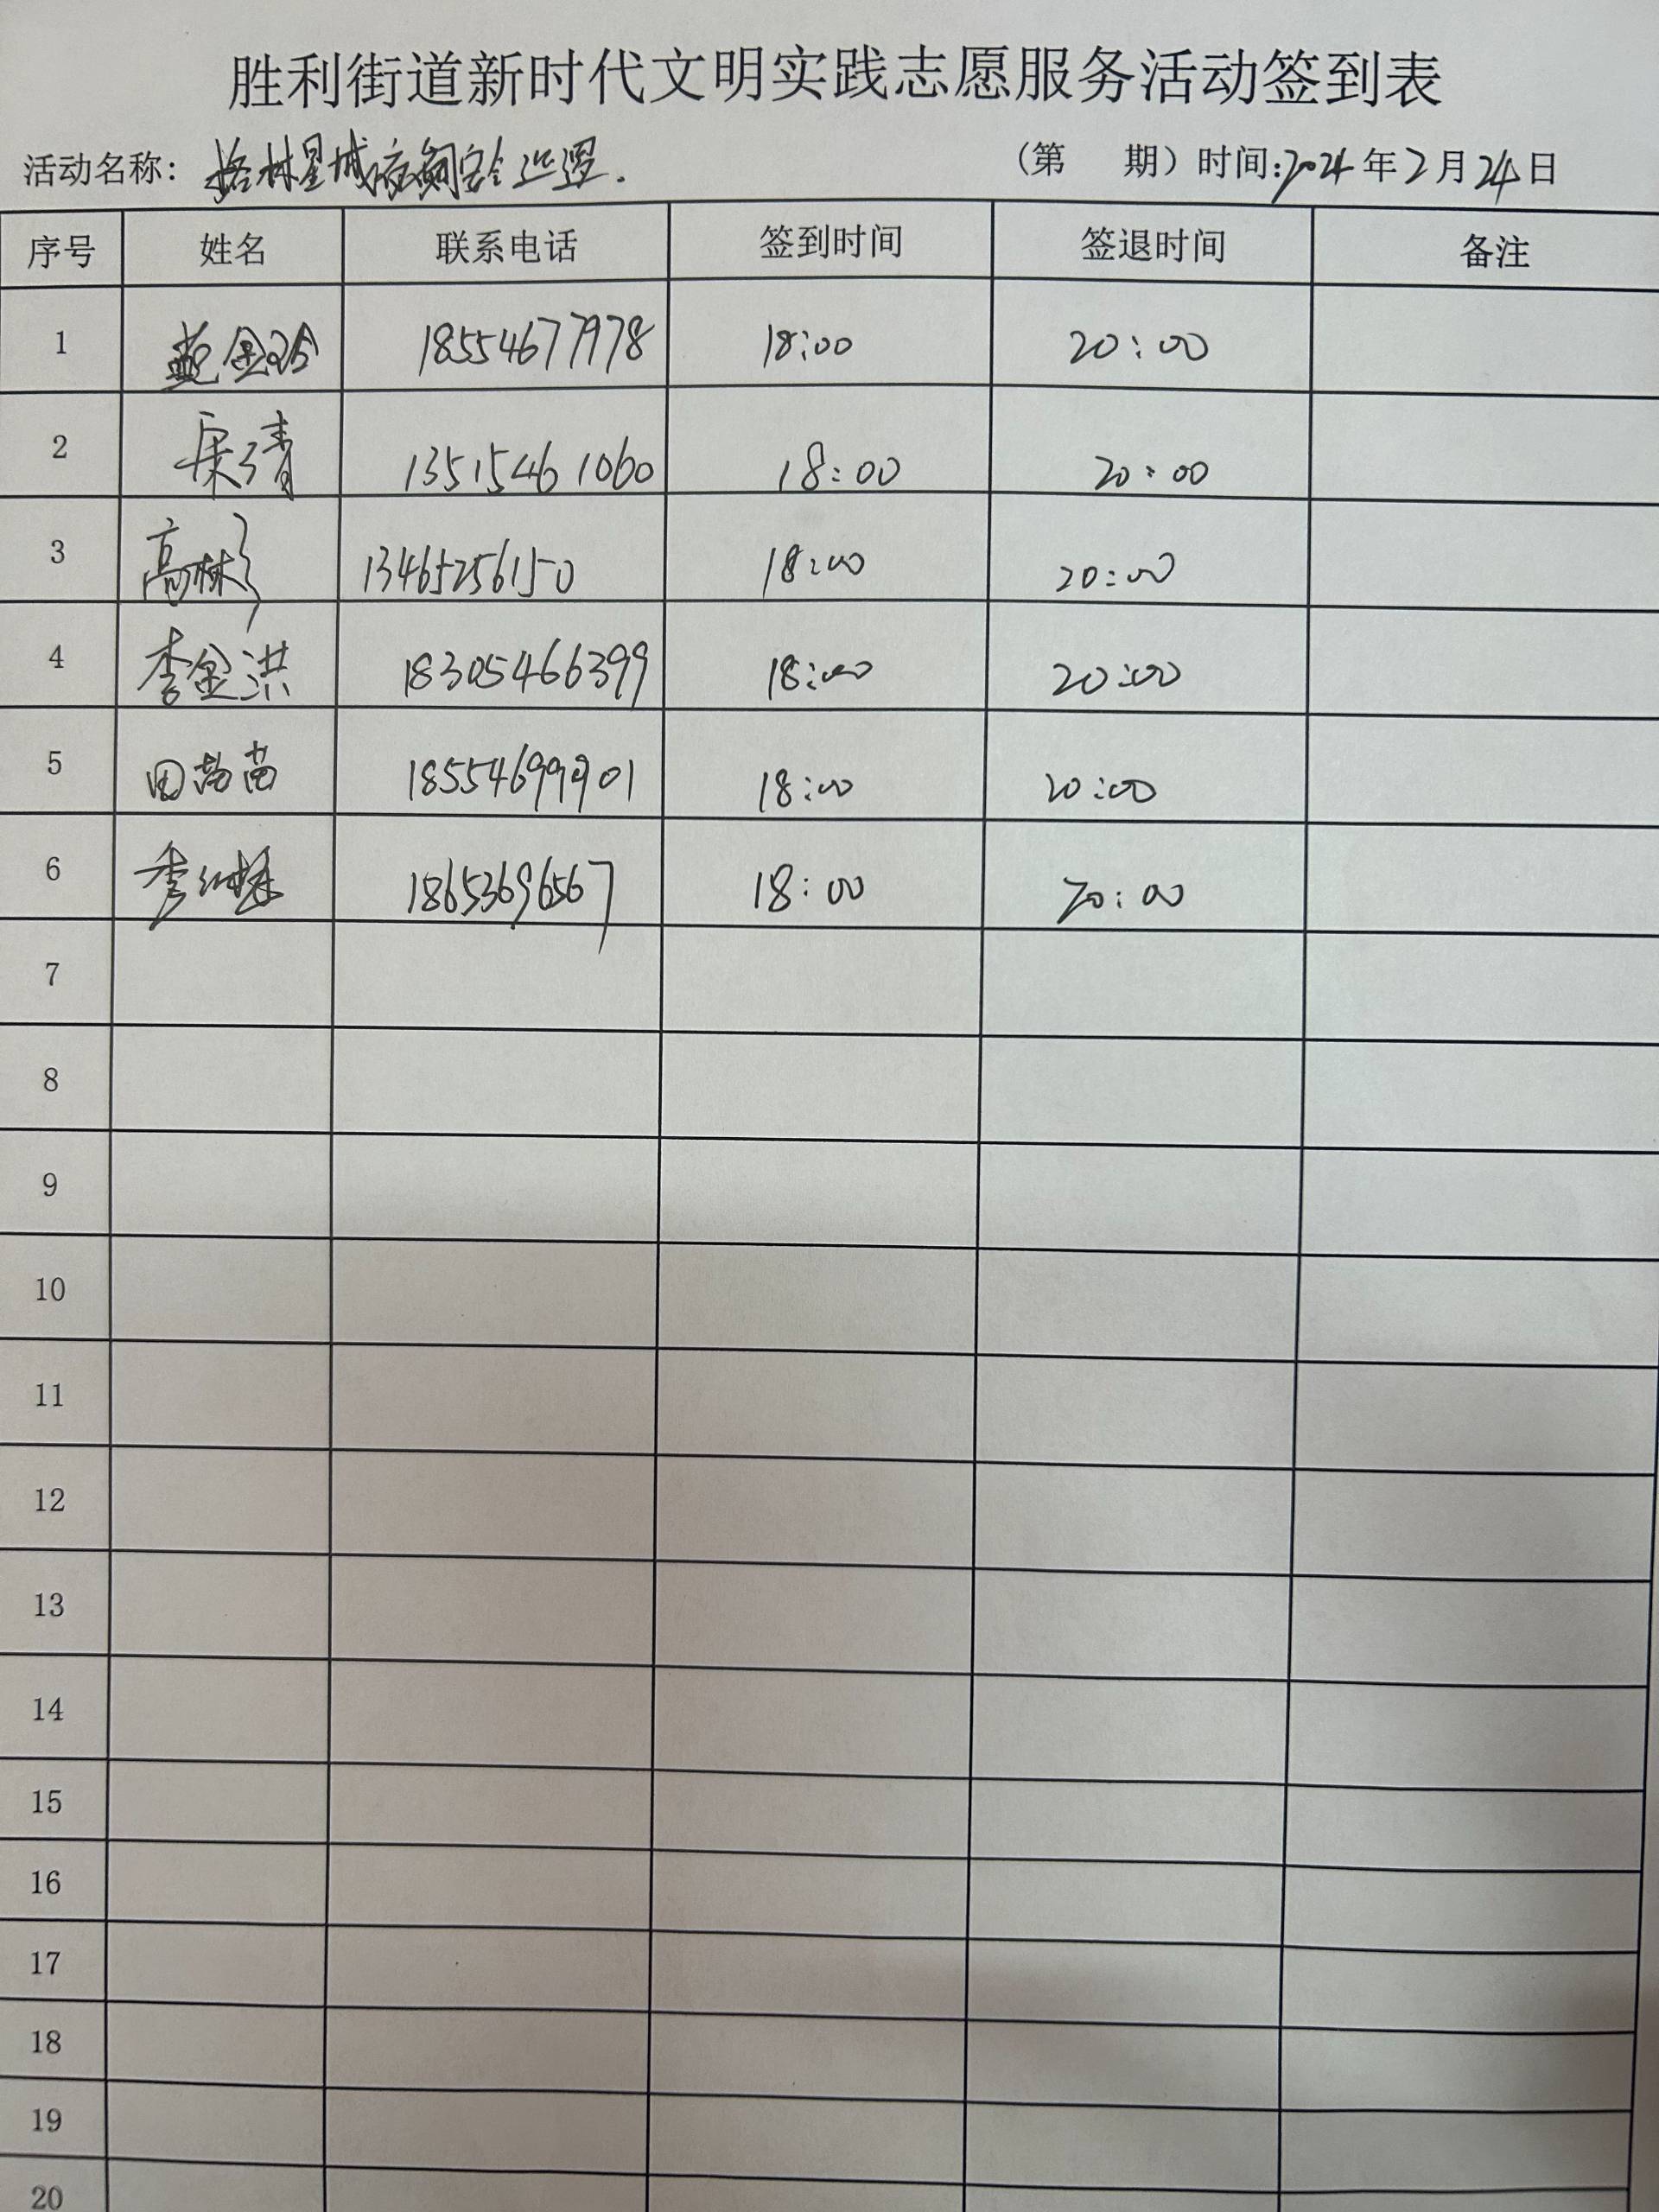 胜利街道新时代文明实践志愿服务活动签到表
活动名称: 格林星城夜间安全巡逻. (第 期) 时间:2024年2月24日
序号 姓名 联系电话 签到时间 签退时间 备注
1 18554677978 18:00 20:00
2 13515461060 18:00 20:00
3 高彬 13465256150 18:00 20:00
4 李金洪 18305466399 18:00 20:00
5 田苗 18554699901 18:00 20:00
6 李 18653696567 18:00 20:00
7
8
9
10
11
12
13
14
15
16
17
18
19
20